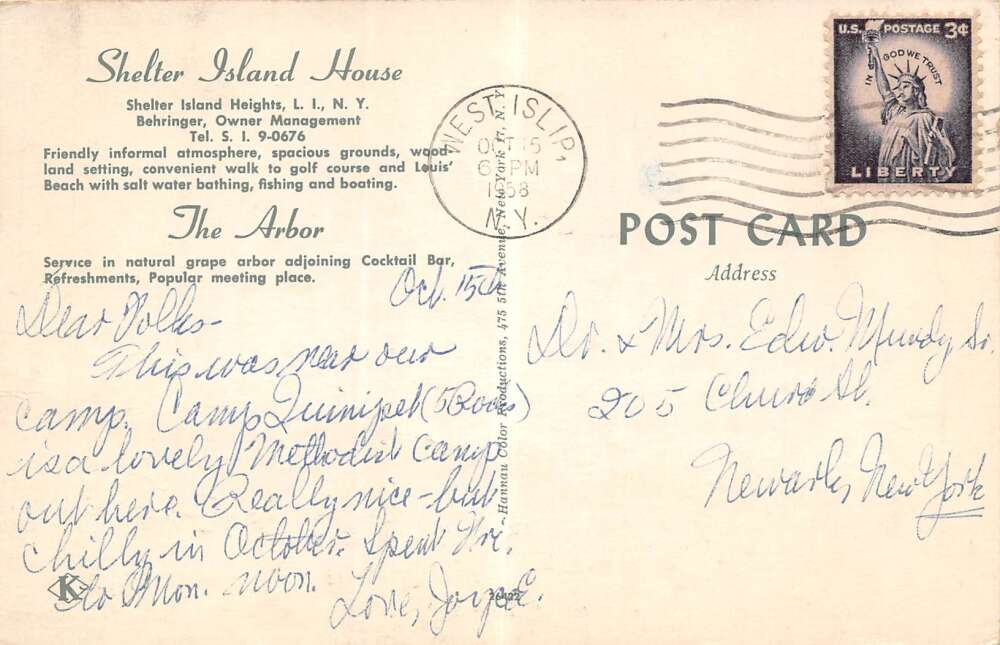 Shelter Island House
Shelter Island Heights, L. I., N. Y.
Behringer, Owner Management
Tel. S. I. 9-0676
Friendly informal atmosphere, spacious grounds, wood-
land setting, convenient walk to golf course and Louis'
Beach with salt water bathing, fishing and boating.
The Arbor
Service in natural grape arbor adjoining Cocktail Bar,
Refreshments, Popular meeting place.
Oct. 15th
Dear Folks-
This was near our
camp. Camp Quinipet
is a lovely Methodist camp
out here. Really nice - but
chilly in October. Spent Fri.
to Mon. noon.
Love, Joyce E.
K
26422
Hannau Color Productions, 475 5th Avenue, New York 17, N. Y.
WEST ISLIP,
OCT 15
6 PM
1958
N.Y.
U.S. POSTAGE 3¢
IN GOD WE TRUST
LIBERTY
POST CARD
Address
Dr. & Mrs. Edw. Mundy Sr.
205 Church St.
Newark, New York